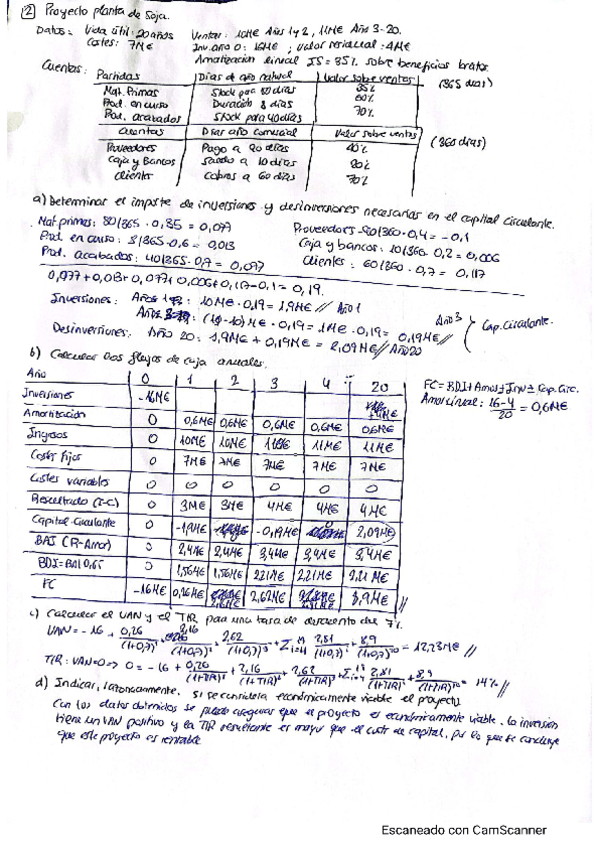 2 Proyecto planta de Soja.
Datos: Vida útil: 20 años Ventas: 10M€ Años 1 y 2, 11M€ Año 3-20.
Costes: 7M€ Inv. año 0: 16M€ ; Valor residual: 4M€
Amortización lineal IS=35% sobre beneficios brutos
Cuentas:
Partidas Días de año natural Valor sobre ventas (365 días)
Mat. Primas Stock para 80 días 35%
Prod. en curso Duración 8 días 60%
Prod. acabados Stock para 40 días 70%
Cuentas Días año comercial Valor sobre ventas (360 días)
Proveedores Pago a 90 días 40%
Caja y Bancos Saldo a 10 días 20%
Clientes Cobros a 60 días 70%
a) Determinar el importe de inversiones y desinversiones necesarias en el capital circulante.
Mat. primas: 80/365 · 0,35 = 0,077 Proveedores -90/360 · 0,4 = -0,1
Prod. en curso: 8/365 · 0,6 = 0,013 Caja y bancos: 10/360 · 0,2 = 0,006
Prod. acabados: 40/365 · 0,7 = 0,077 Clientes: 60/360 · 0,7 = 0,117
0,077+0,013+0,077+0,006+0,117-0,1 = 0,19.
Inversiones: 10M€ · 0,19 = 1,9M€ // Año 1
(11-10)M€ · 0,19 = 1M€ · 0,19 = 0,19M€ // Año 3
Desinversiones: Año 20: 1,9M€ + 0,19M€ = 2,09M€ // Año 20 Cap. Circulante.
b) Calcular los flujos de caja anuales.
Año 0 1 2 3 4 20
Inversiones -16M€ +4M€
Amortización 0 0,6M€ 0,6M€ 0,6M€ 0,6M€ 0,6M€
Ingresos 0 10M€ 10M€ 11M€ 11M€ 11M€
Costes Fijos 0 7M€ 7M€ 7M€ 7M€ 7M€
Costes variables 0 0 0 0 0 0
Resultado (I-C) 0 3M€ 3M€ 4M€ 4M€ 4M€
Capital Circulante 0 -1,9M€ -0,19M€ 2,09M€
BAI (R-Amor) 0 2,4M€ 2,4M€ 3,4M€ 3,4M€ 3,4M€
BDI=BAI·0,65 0 1,56M€ 1,56M€ 2,21M€ 2,21M€ 2,21M€
FC -16M€ 0,26M€ 2,62M€ 8,9M€ //
FC = BDI + Amor ± Inv ± Cap. Circ.
Amor Lineal: 16-4/20 = 0,6M€
c) Calcular el VAN y el TIR para una tasa de descuento del 7%.
VAN = -16 + 0,26/(1+0,7)¹ + 2,16/(1+0,7)² + 2,62/(1+0,7)³ + Σ 2,81/(1+0,7) + 8,9/(1+0,7)²⁰ = 12,23M€ //
TIR: VAN=0 => 0 = -16 + 0,26/(1+TIR)¹ + 2,16/(1+TIR)² + 2,62/(1+TIR)³ + Σ 2,81/(1+TIR) + 8,9/(1+TIR)²⁰ = 14% //
d) Indicar, razonadamente, si se considera económicamente viable el proyecto
Con los datos obtenidos se puede asegurar que el proyecto es económicamente viable. La inversión
tiene un VAN positivo y la TIR resultante es mayor que el coste de capital, por lo que se concluye
que este proyecto es rentable
Escaneado con CamScanner